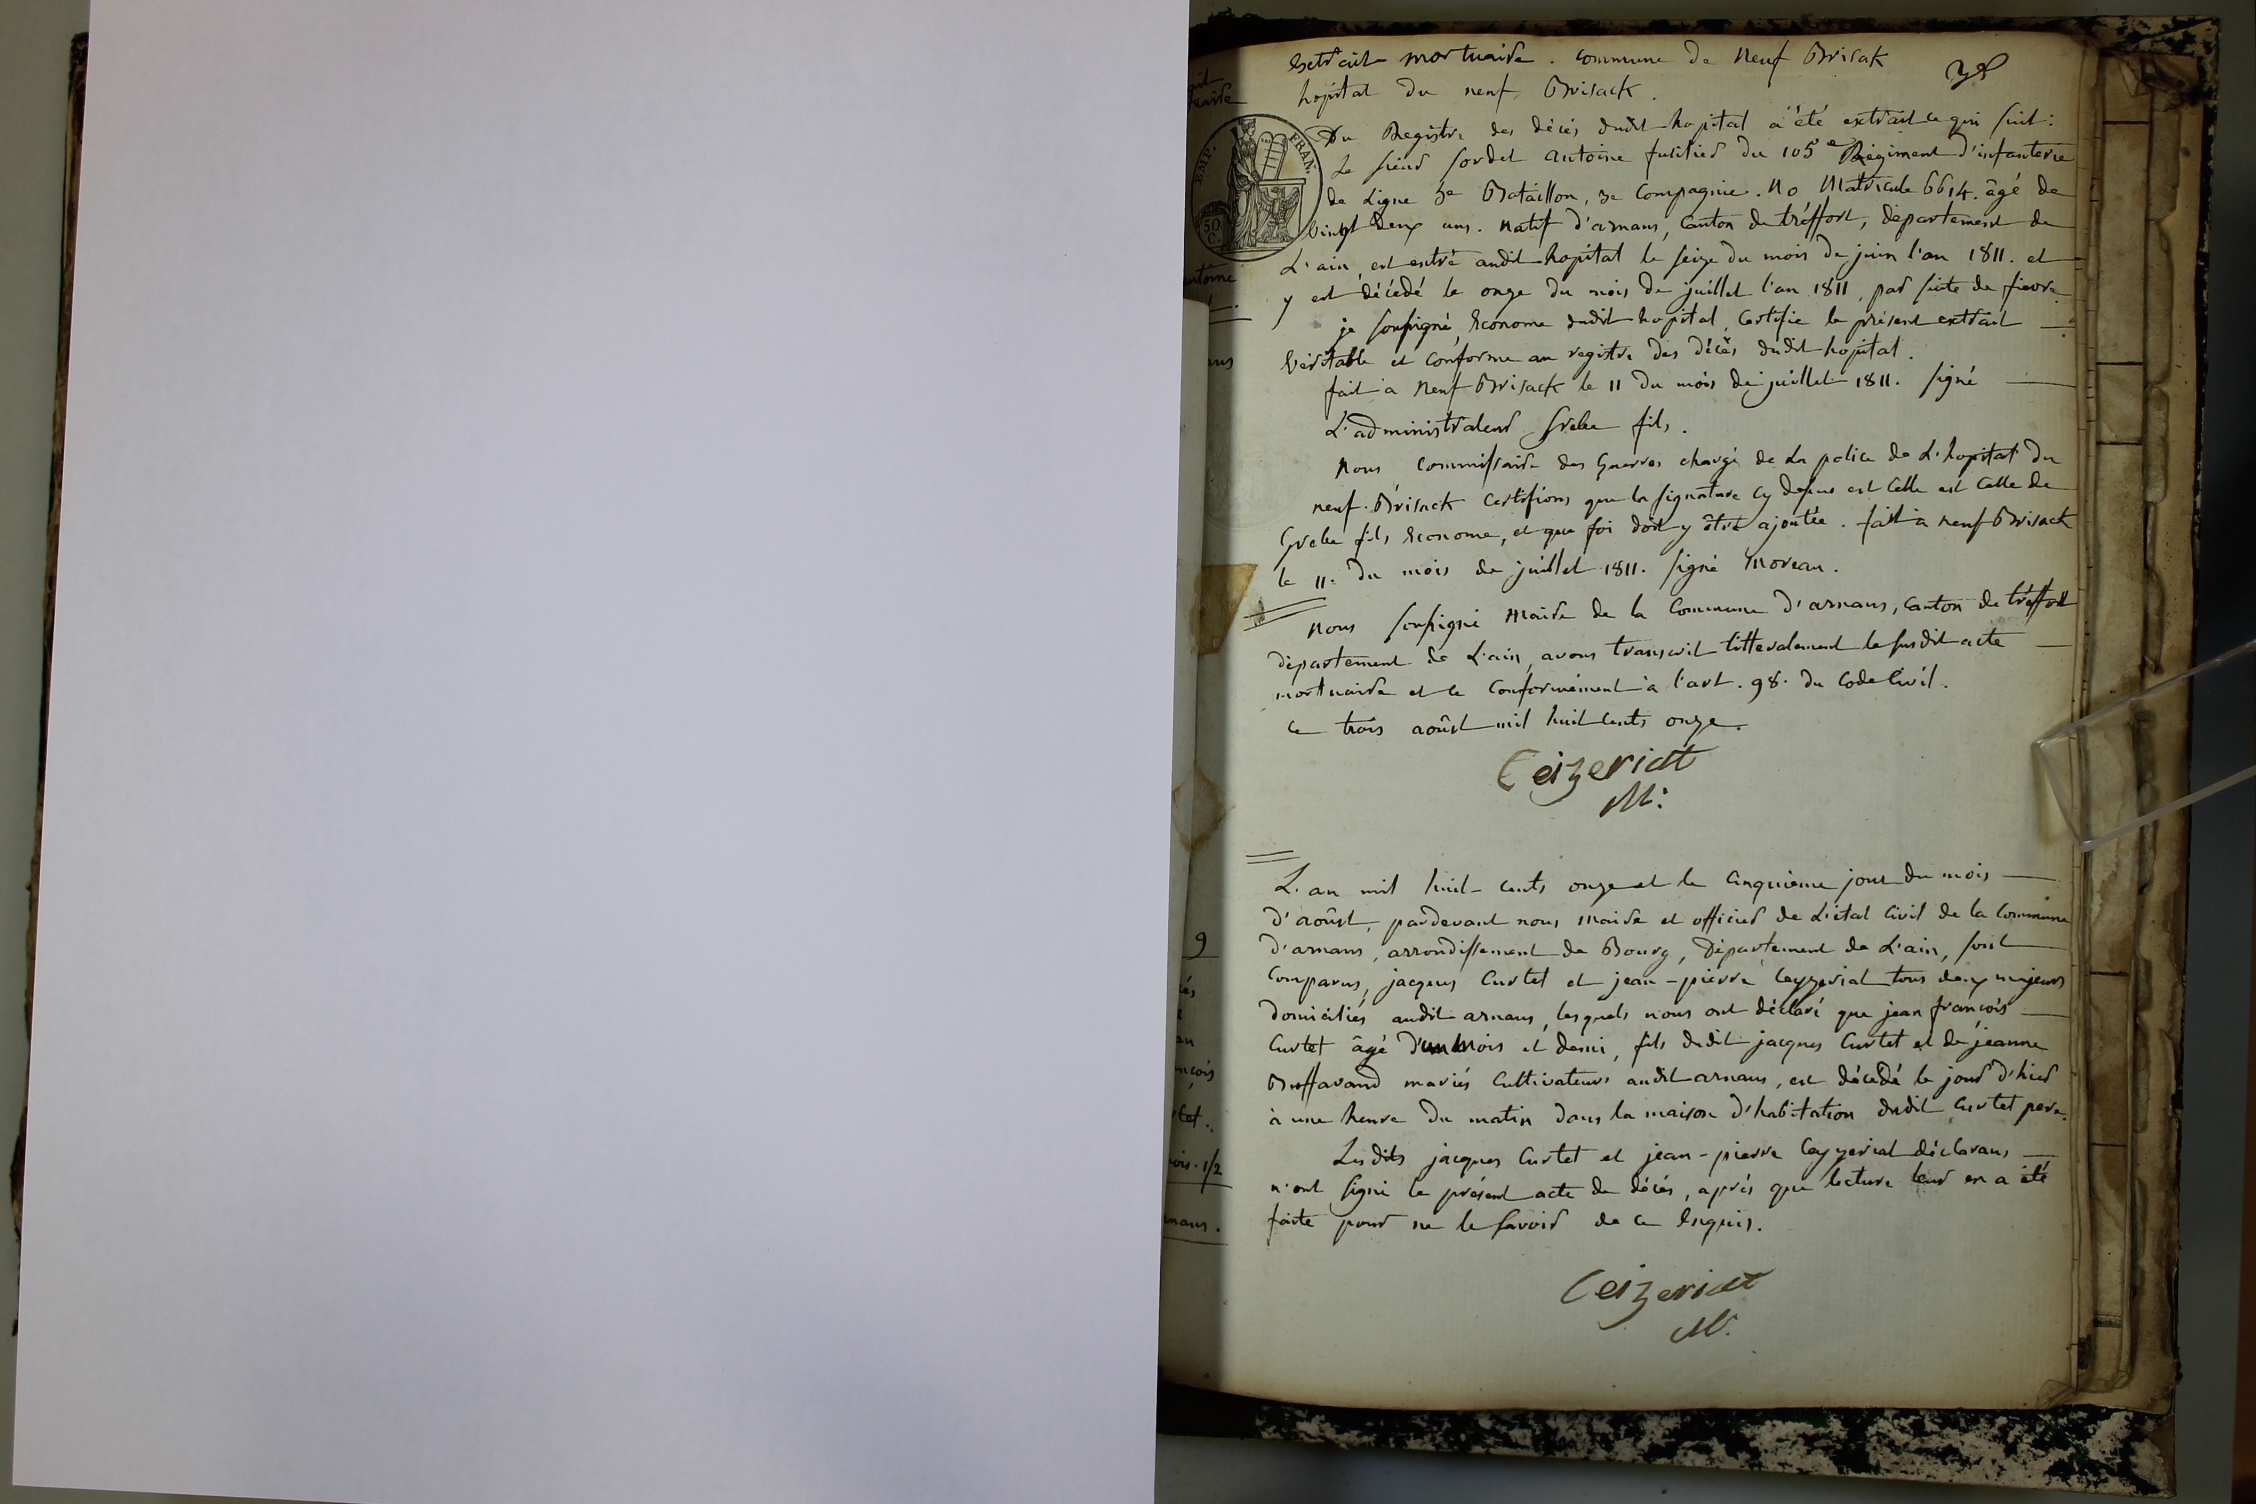 Extrait mortuaire. Commune de Neuf Brisak
hopital du neuf Brisack.
EMP. FRAN.
50 C.
Du Registre des décès dudit hopital a été extrait ce qui suit:
Le sieur Sordet antoine fusilier du 105e Régiment d'infanterie
de Ligne 3e Bataillon, 3e Compagnie. No Matricule 6614. âgé de
vingt deux ans. natif d'arnans, Canton de tréffort, département de
L'ain, est entré audit hopital le seize du mois de juin l'an 1811. et
y est décédé le onze du mois de juillet l'an 1811, par suite de fievre.
je soussigné, Econome dudit hopital, Certifie le présent extrait
véritable et conforme au registre des décès dudit hopital.
fait à Neuf Brisack le 11 du mois de juillet 1811. signé
L'administrateur fils.
Nous Commissaire des Guerres chargé de La police de L'hopital du
neuf-Brisack Certifions que la signature cy dessus est Celle est Celle de
fils Econome, et que foi doit y être ajoutée. fait à neuf Brisack
le 11. du mois de juillet 1811. signé Moreau.
Nous soussigné Maire de la Commune d'arnans, Canton de tréffort
département de L'ain, avons transcrit litteralement le susdit acte
mortuaire et ce Conformément à l'art. 98. du Code Civil.
ce trois août mil huit cents onze.
Ceizeriat
M:
L'an mil huit-cents onze et le Cinquieme jour du mois
d'août, pardevant nous Maire et officier de L'état Civil de la Commune
d'arnans, arrondissement de Bourg, Département de L'ain, sont
Comparus, jacques Curtet et jean-pierre Ceyzeriat tous deux majeurs
domiciliés audit arnans, lesquels nous ont déclaré que jean françois
Curtet âgé d'un Mois et demi, fils dudit jacques Curtet et de jeanne
Buffavand mariés Cultivateurs audit arnans, est décédé le jour d'hier
à une heure du matin dans la maison d'habitation dudit Curtet pere.
Lesdits jacques Curtet et jean-pierre Ceyzeriat déclarans
n'ont signé le présent acte de décès, après que lecture leur en a été
faite pour ne le savoir de ce Enquis.
Ceizeriat
M.